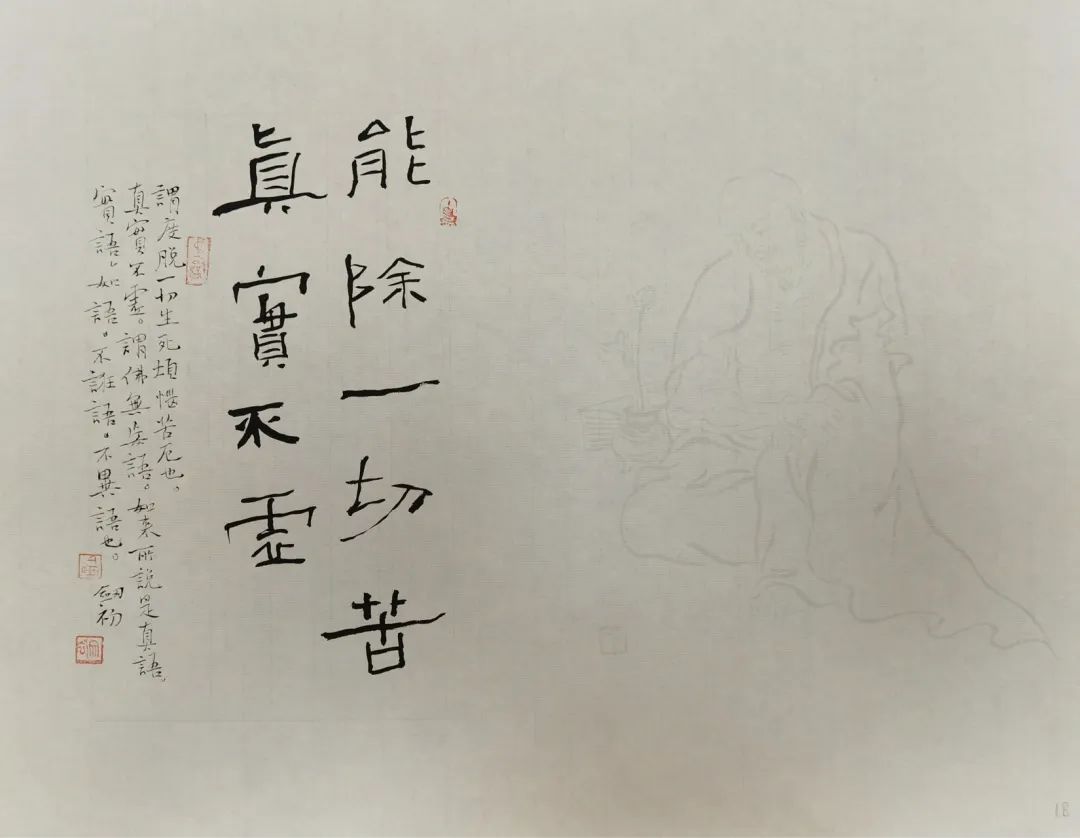 能除一切苦
真實不虛
謂度脫一切生死煩惱苦厄也。
真實不虛。謂佛無妄語。如來所說是真語。
實語。如語。不誑語。不異語也。
劍初
18